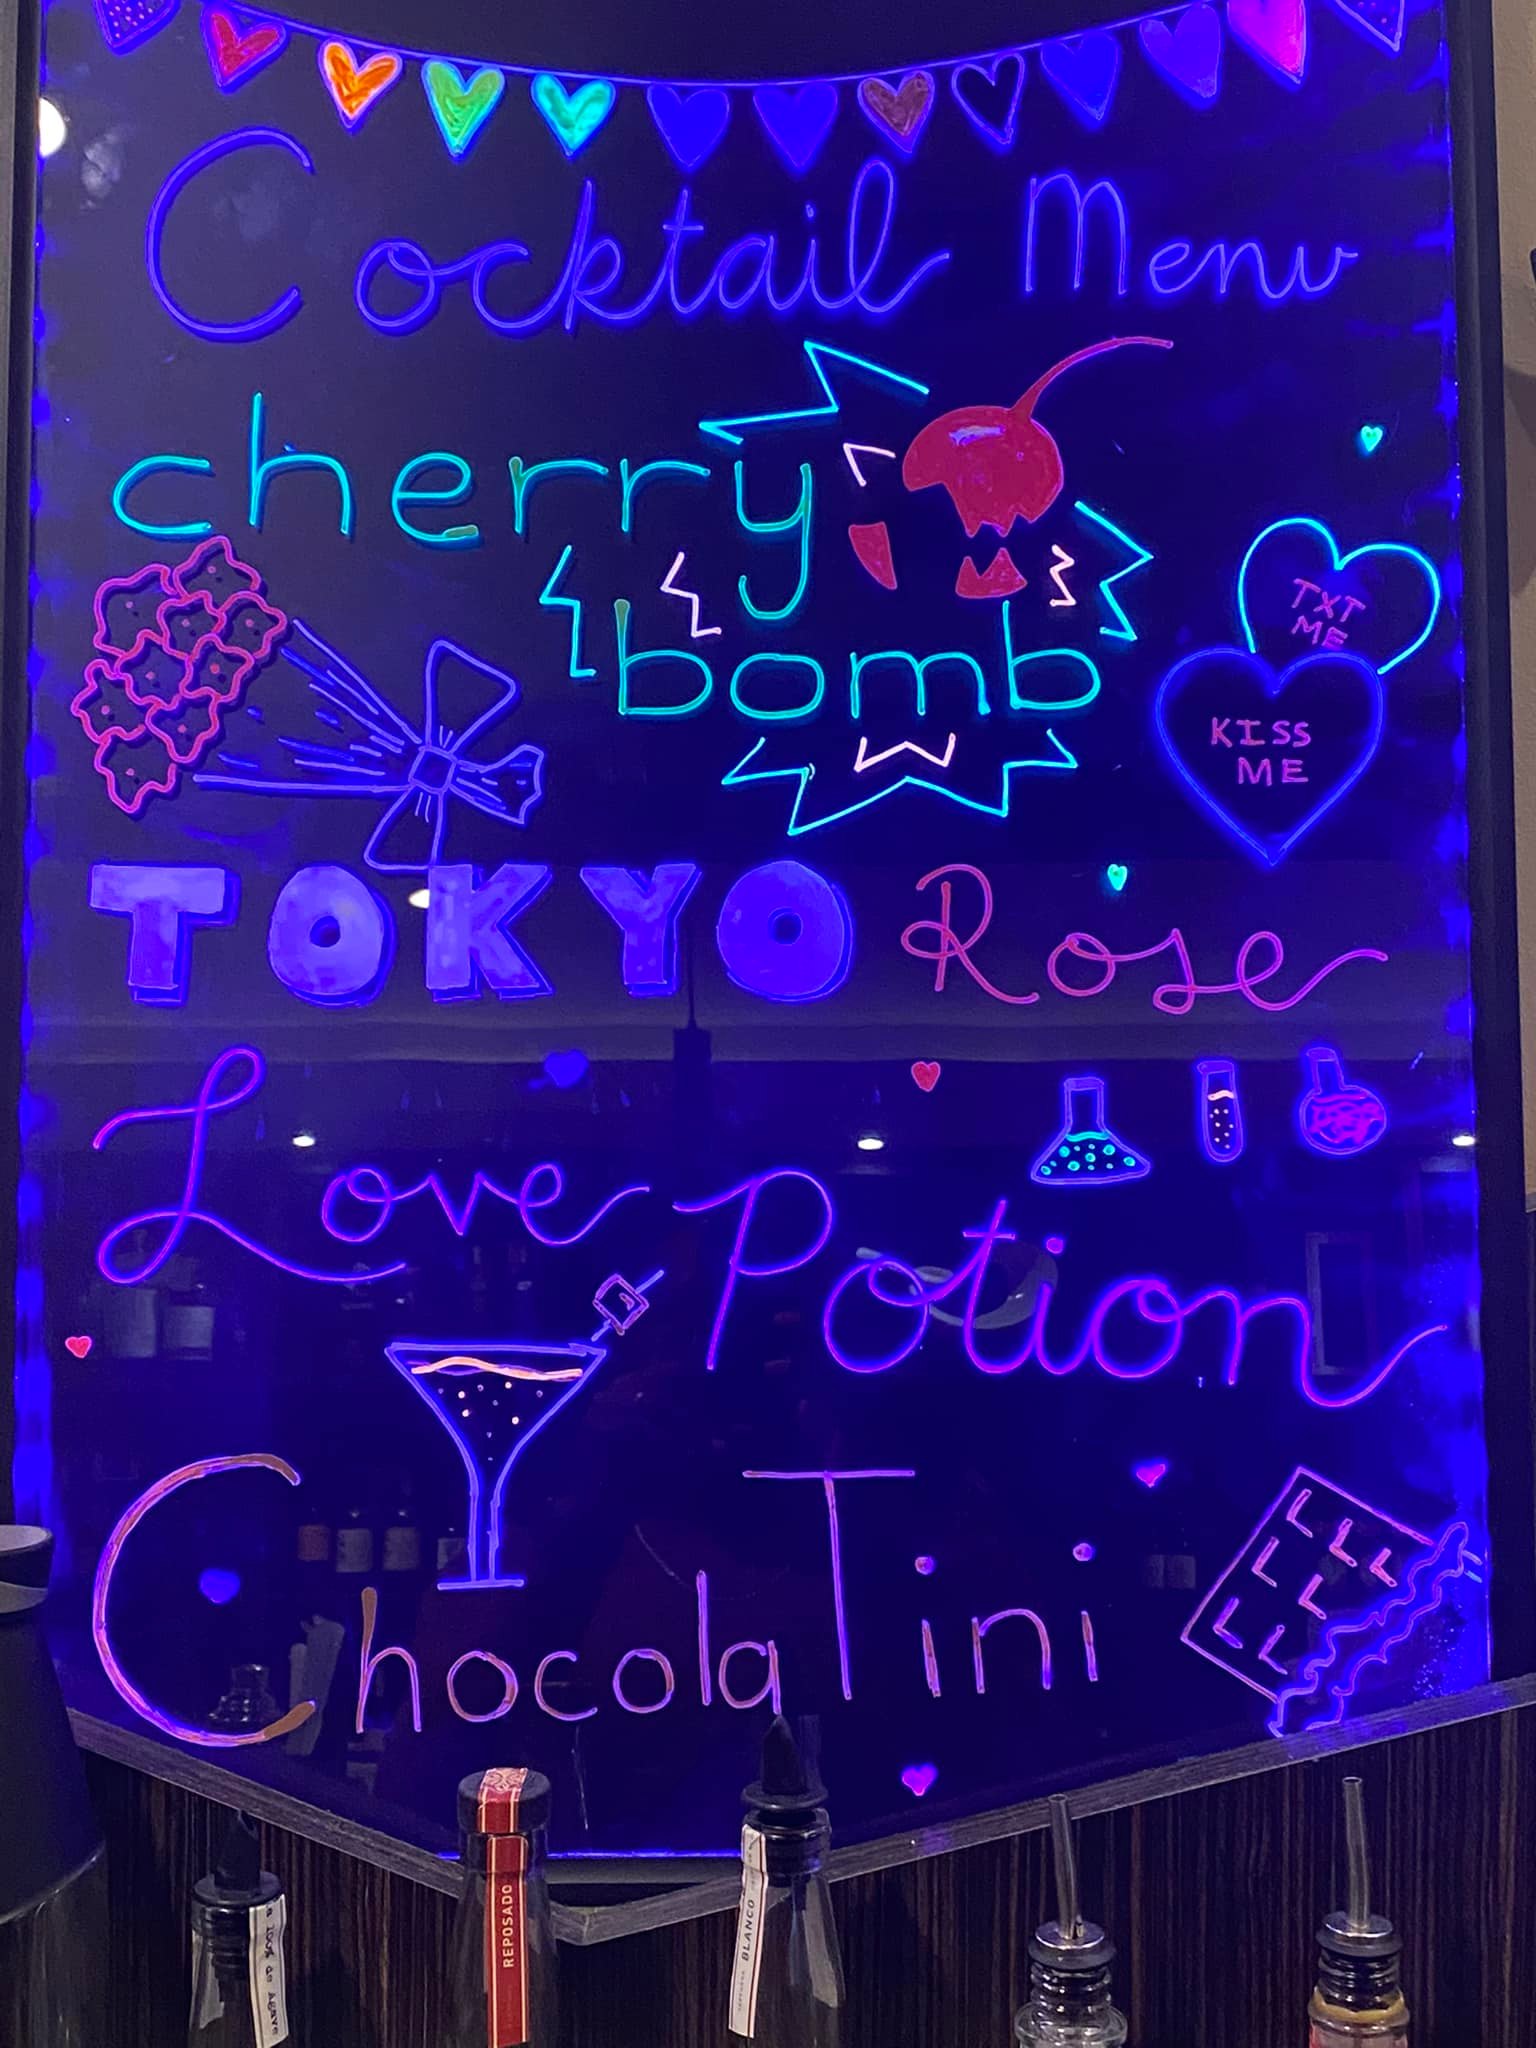 Cocktail Menu
cherry
bomb
TXT
ME
KISS
ME
TOKYO Rose
Love Potion
ChocolaTini
100% de Agave
REPOSADO
BLANCO